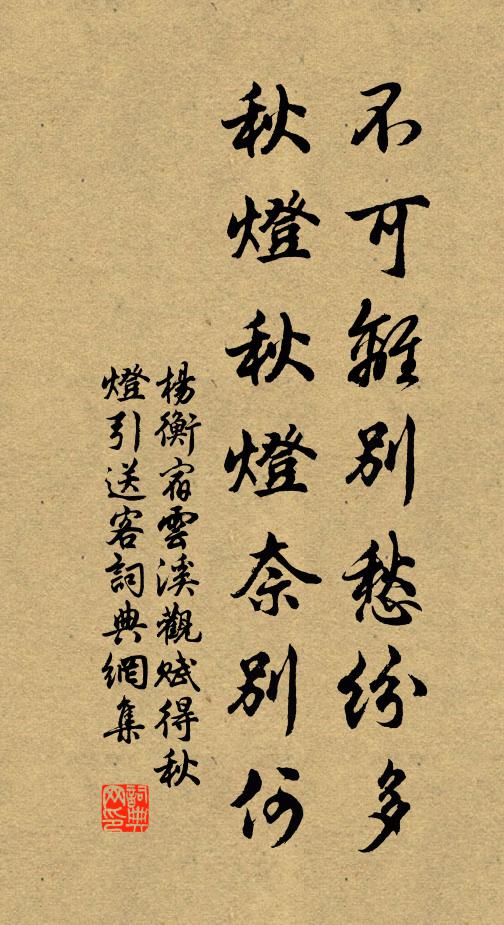 不可離別愁紛多
秋燈秋燈奈別何
楊衡宿雲溪觀賦得秋
燈引送客詞典網集
詞典
网印